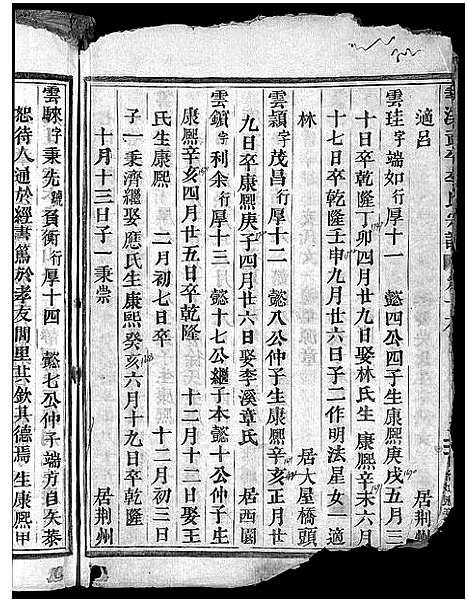 適呂　居荆州
雲珪字端如行厚十一　懿四公四子生康熙庚戌五月三
十日卒乾隆丁卯四月廿九日娶林氏生　康熙辛未六月
十七日卒乾隆壬申九月廿六日子二作明法星女一適
林　居大屋橋頭
雲潁字茂昌行厚十二　懿八公仲子生康熙辛亥正月廿
九日卒康熙庚子四月廿六日娶李溪章氏　居西園
雲鎖字利余行厚十三　懿十七公繼子本懿十公仲子生
康熙辛亥四月廿五日卒乾隆　十二月十二日娶王
氏生康熙　二月初七日卒　十二月初三日
子一秉濟繼娶應氏生康熙癸亥六月十九日卒乾隆
十月十三日子一秉崇　居荆州
雲騋字秉先號賓衡行厚十四　懿七公仲子端方自矢恭
恕待人通於經書篤於孝友閭里共欽其德焉　生康熙甲